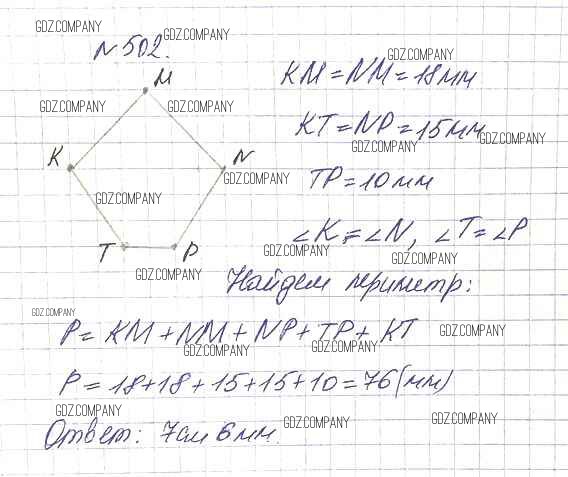 GDZ.COMPANY
GDZ.COMPANY
N 502.
GDZ.COMPANY
M
KM = NM = 18 мм
GDZ.COMPANY
GDZ.COMPANY
KT = NP = 15 мм
GDZ.COMPANY
GDZ.COMPANY
K
N
GDZ.COMPANY
TP = 10 мм
GDZ.COMPANY
∠K = ∠N, ∠T = ∠P
T
P
GDZ.COMPANY
GDZ.COMPANY
GDZ.COMPANY
Найдем периметр:
GDZ.COMPANY
P = KM + NM + NP + TP + KT
GDZ.COMPANY
GDZ.COMPANY
GDZ.COMPANY
P = 18 + 18 + 15 + 15 + 10 = 76 (мм)
GDZ.COMPANY
GDZ.COMPANY
GDZ.COMPANY
Ответ: 7 см 6 мм.